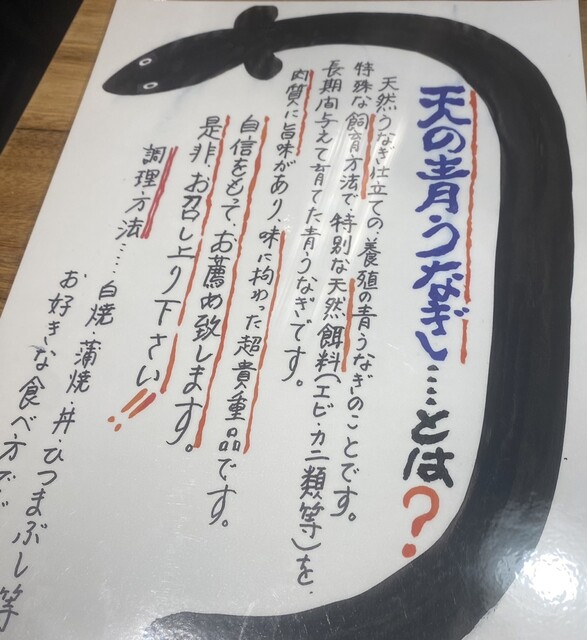 天の青うなぎ…とは?
天然うなぎ仕立ての養殖の青うなぎのことです。
特殊な飼育方法で、特別な天然餌料(エビ・カニ類等)を、
長期間与えて育てた青うなぎです。
肉質に旨味があり、味に拘わった超貴重品です。
自信をもって、お薦め致します。
是非、お召し上り下さい!!
調理方法……白焼 蒲焼・丼・ひつまぶし等
お好きな食べ方で